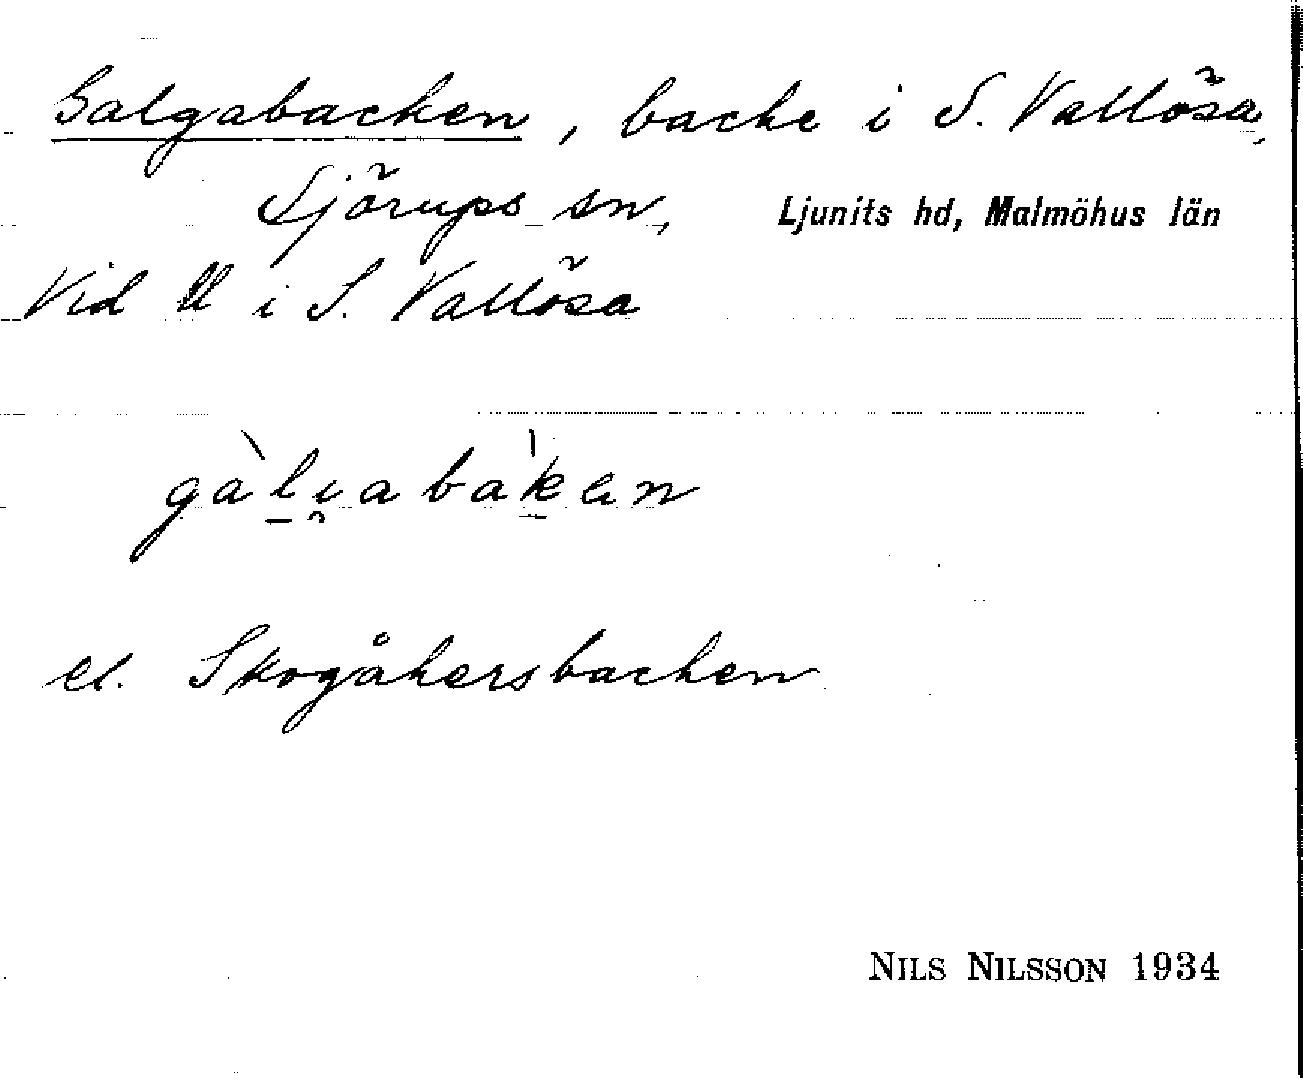 Galgabacken, backe i S. Vallösa,
Sjörups sn, Ljunits hd, Malmöhus län
Vid ll i S. Vallösa
el. Skogåkersbacken
NILS NILSSON 1934